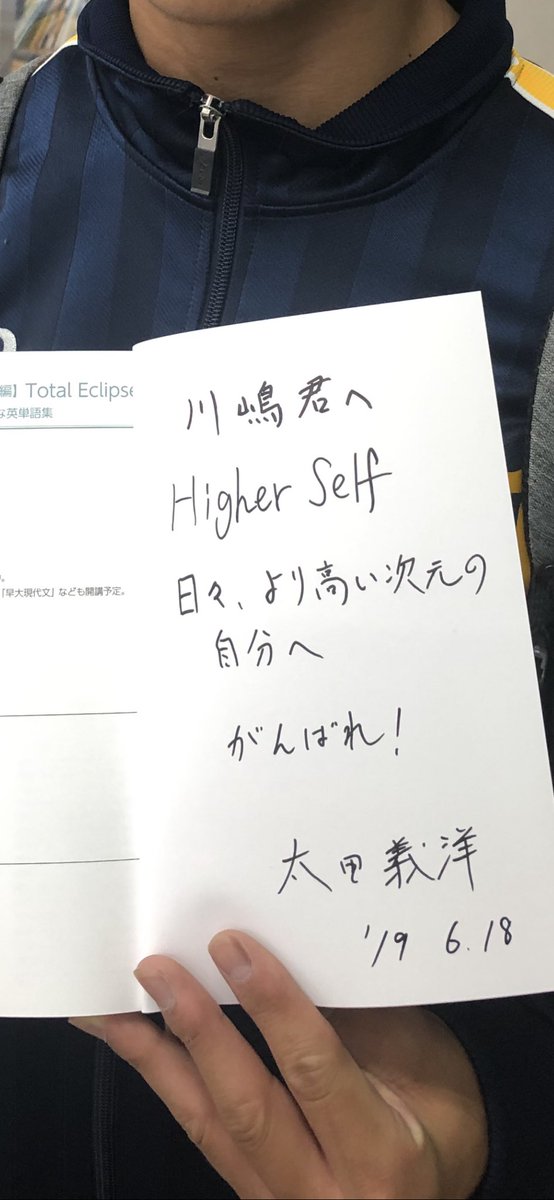 編】Total Eclipse
な英単語集
「早大現代文」なども開講予定。
川嶋君へ
Higher Self
日々、より高い次元の
自分へ
がんばれ!
太田義洋
'19 6.18